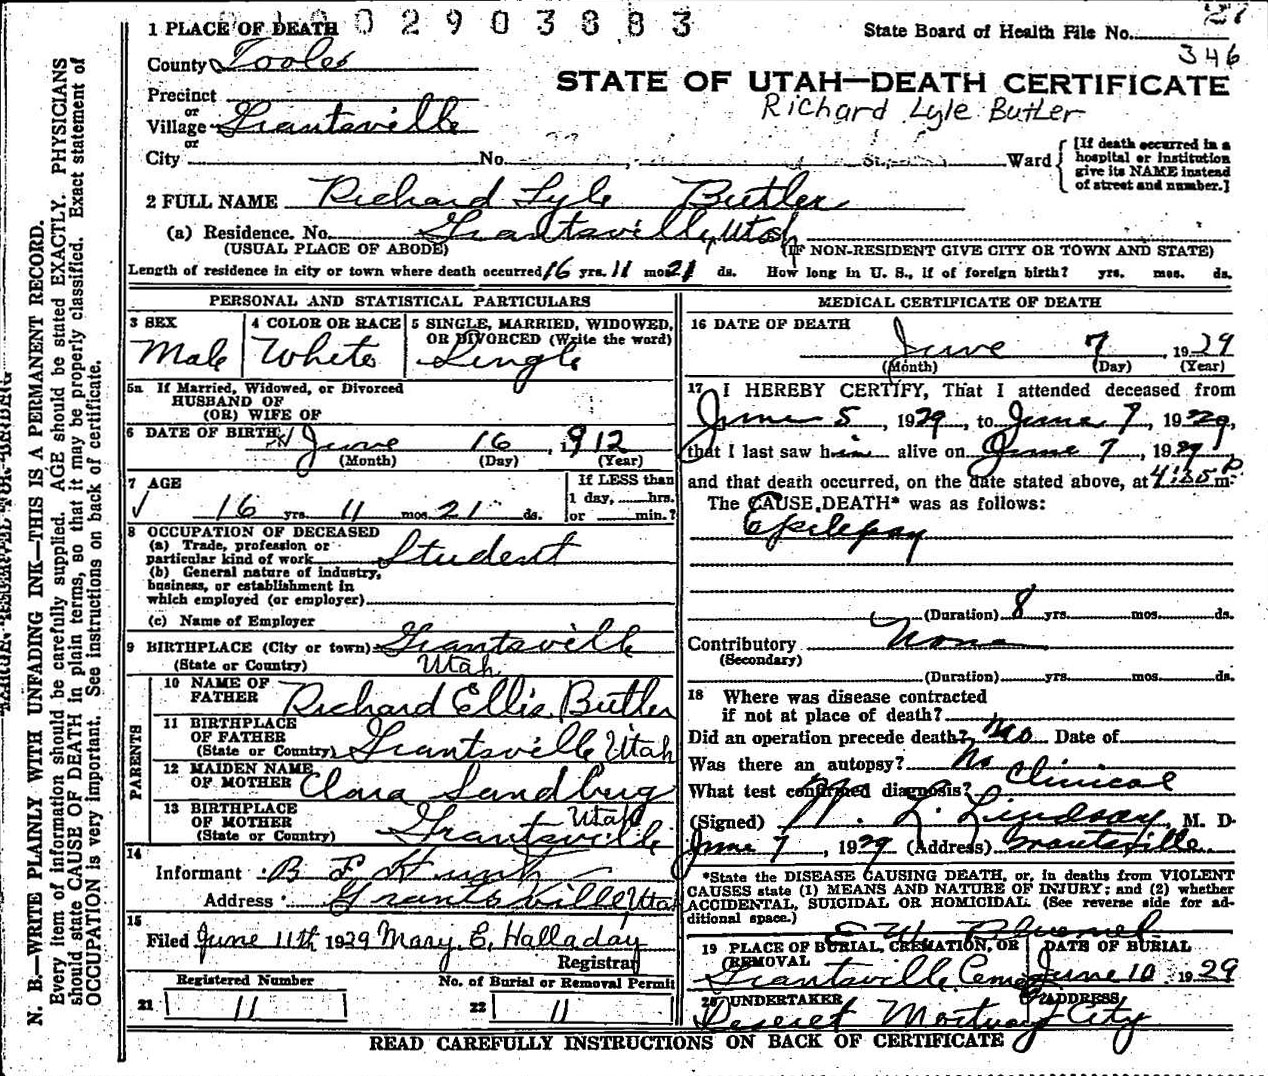 1 PLACE OF DEATH 0 0 2 9 0 3 8 8 3
State Board of Health File No. 21
346
County Tooele
STATE OF UTAH—DEATH CERTIFICATE
Richard Lyle Butler
Precinct
or
Village Grantsville
or
City No. St. Ward
[If death occurred in a hospital or institution give its NAME instead of street and number.]
2 FULL NAME Richard Lyle Butler
(a) Residence. No. Grantsville, Utah
(USUAL PLACE OF ABODE) (IF NON-RESIDENT GIVE CITY OR TOWN AND STATE)
Length of residence in city or town where death occurred 16 yrs. 11 mos. 21 ds. How long in U. S., if of foreign birth? yrs. mos. ds.
PERSONAL AND STATISTICAL PARTICULARS
3 SEX
Male
4 COLOR OR RACE
White
5 SINGLE, MARRIED, WIDOWED, OR DIVORCED (Write the word)
Single
5a If Married, Widowed, or Divorced
HUSBAND OF
(OR) WIFE OF
6 DATE OF BIRTH June 16, 1912
(Month) (Day) (Year)
7 AGE
16 yrs. 11 mos. 21 ds.
If LESS than
1 day, hrs.
or min.?
8 OCCUPATION OF DECEASED
(a) Trade, profession or
particular kind of work Student
(b) General nature of industry,
business, or establishment in
which employed (or employer)
(c) Name of Employer
9 BIRTHPLACE (City or town) Grantsville
(State or Country) Utah
PARENTS
10 NAME OF
FATHER Richard Ellis Butler
11 BIRTHPLACE
OF FATHER
(State or Country) Grantsville Utah
12 MAIDEN NAME
OF MOTHER Clara Sandberg
13 BIRTHPLACE
OF MOTHER Utah
(State or Country) Grantsville
14
Informant B F
Address Grantsville, Utah
15
Filed June 11th 1929 Mary E. Halladay
Registrar
Registered Number No. of Burial or Removal Permit
21 11 22 11
MEDICAL CERTIFICATE OF DEATH
16 DATE OF DEATH
June 7, 1929
(Month) (Day) (Year)
17 I HEREBY CERTIFY, That I attended deceased from
June 5, 1929, to June 7, 1929,
that I last saw him alive on June 7, 1929,
and that death occurred, on the date stated above, at P m.
The CAUSE DEATH* was as follows:
Epilepsy
(Duration) 8 yrs. mos. ds.
Contributory None
(Secondary)
(Duration) yrs. mos. ds.
18 Where was disease contracted
if not at place of death?
Did an operation precede death? No Date of
Was there an autopsy? No
What test confirmed diagnosis? Clinical
(Signed) L. Lindsay, M. D.
June 7, 1929 (Address) Grantsville
*State the DISEASE CAUSING DEATH, or, in deaths from VIOLENT
CAUSES state (1) MEANS AND NATURE OF INJURY; and (2) whether
ACCIDENTAL, SUICIDAL OR HOMICIDAL. (See reverse side for ad-
ditional space.)
E W
19 PLACE OF BURIAL, CREMATION, OR
REMOVAL
Grantsville Cem
DATE OF BURIAL
June 10 1929
20 UNDERTAKER
Deseret Mortuary
ADDRESS
City
READ CAREFULLY INSTRUCTIONS ON BACK OF CERTIFICATE
N. B.—WRITE PLAINLY WITH UNFADING INK—THIS IS A PERMANENT RECORD.
Every item of information should be carefully supplied. AGE should be stated EXACTLY. PHYSICIANS
should state CAUSE OF DEATH in plain terms, so that it may be properly classified. Exact statement of
OCCUPATION is very important. See instructions on back of certificate.